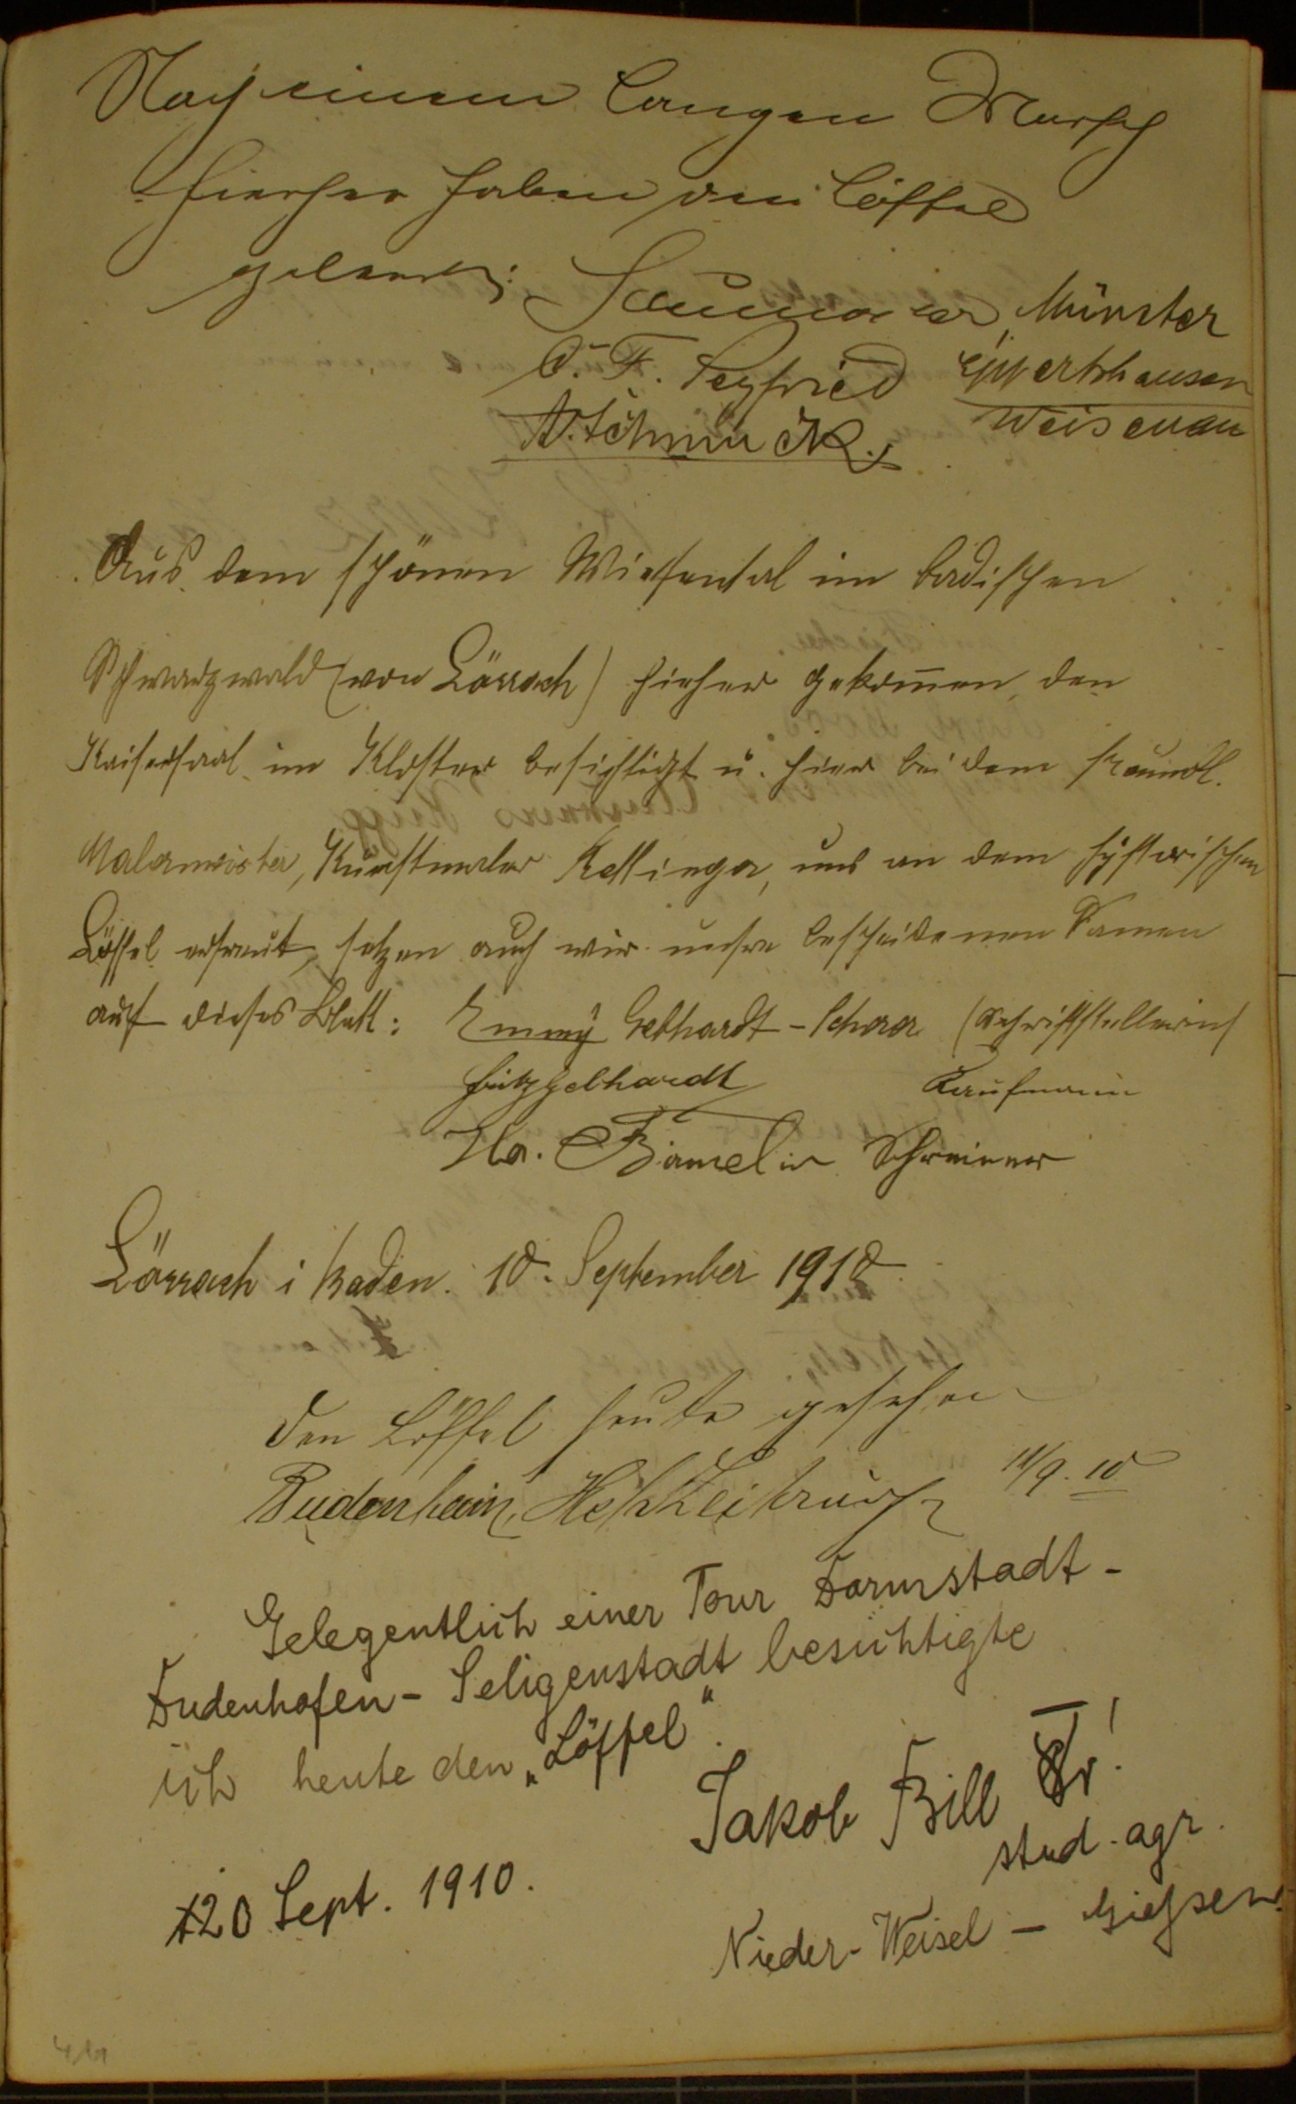 Nach einem langen Marsch
hierher haben den Löffel
geleert:
Münster
C. F. Seyfried Eppertshausen
A. Schmuck Weisenau
Aus dem schönen Wiesental im badischen
Schwarzwald (von Lörrach) hieher gekom̅en, den
Kaisersaal im Kloster besichtigt u. hier bei dem freundl.
Malermeister, Kunstmaler Kettinger, uns an dem hystorischen
Löffel erfreut, setzen auch wir unsre bescheidenen Namen
auf dieses Blatt: Emmy Gebhardt-Schaar (Schriftstellerin)
Fritz Gebhardt Kaufmann
Schreiner
Lörrach i Baden. 10. September 1910.
Den Löffel heute gesehen
Budenheim, 11/9. 10
Gelegentlich einer Tour Darmstadt-
Dudenhofen-Seligenstadt besichtigte
ich heute den „Löffel“.
Jakob Bill
stud. agr.
20 Sept. 1910.
Nieder-Weisel — Giessen.